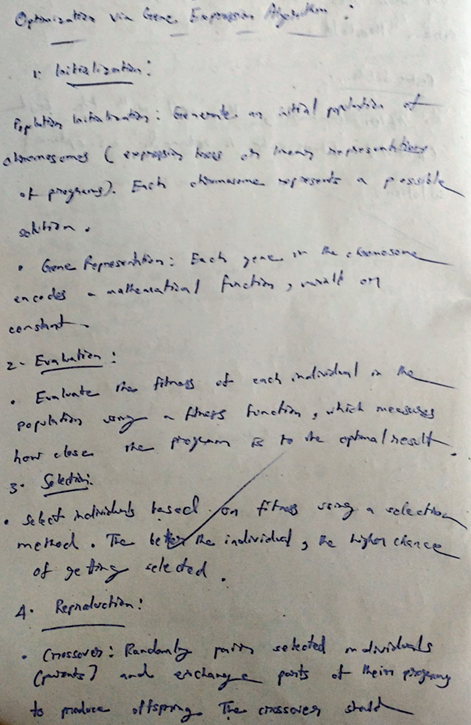 Optimization via Gene Expression Algorithm :
1. Initialization :
Population Initialization : Generate an initial population of
chromosomes ( expression trees or linear representations
of programs). Each chromosome represents a possible
solution .
• Gene Representation : Each gene in the chromosome
encodes a mathematical function , or
constant .
2 - Evaluation :
• Evaluate the fitness of each individual in the
population using a fitness function , which measures
how close the program is to the optimal result .
3 - Selection:
• select individuals based on fitness using a selection
method . The better the individual , the higher chance
of getting selected .
4. Reproduction :
• Crossover : Randomly pair selected individuals
(parents) and exchange parts of their programs
to produce offspring The crossover